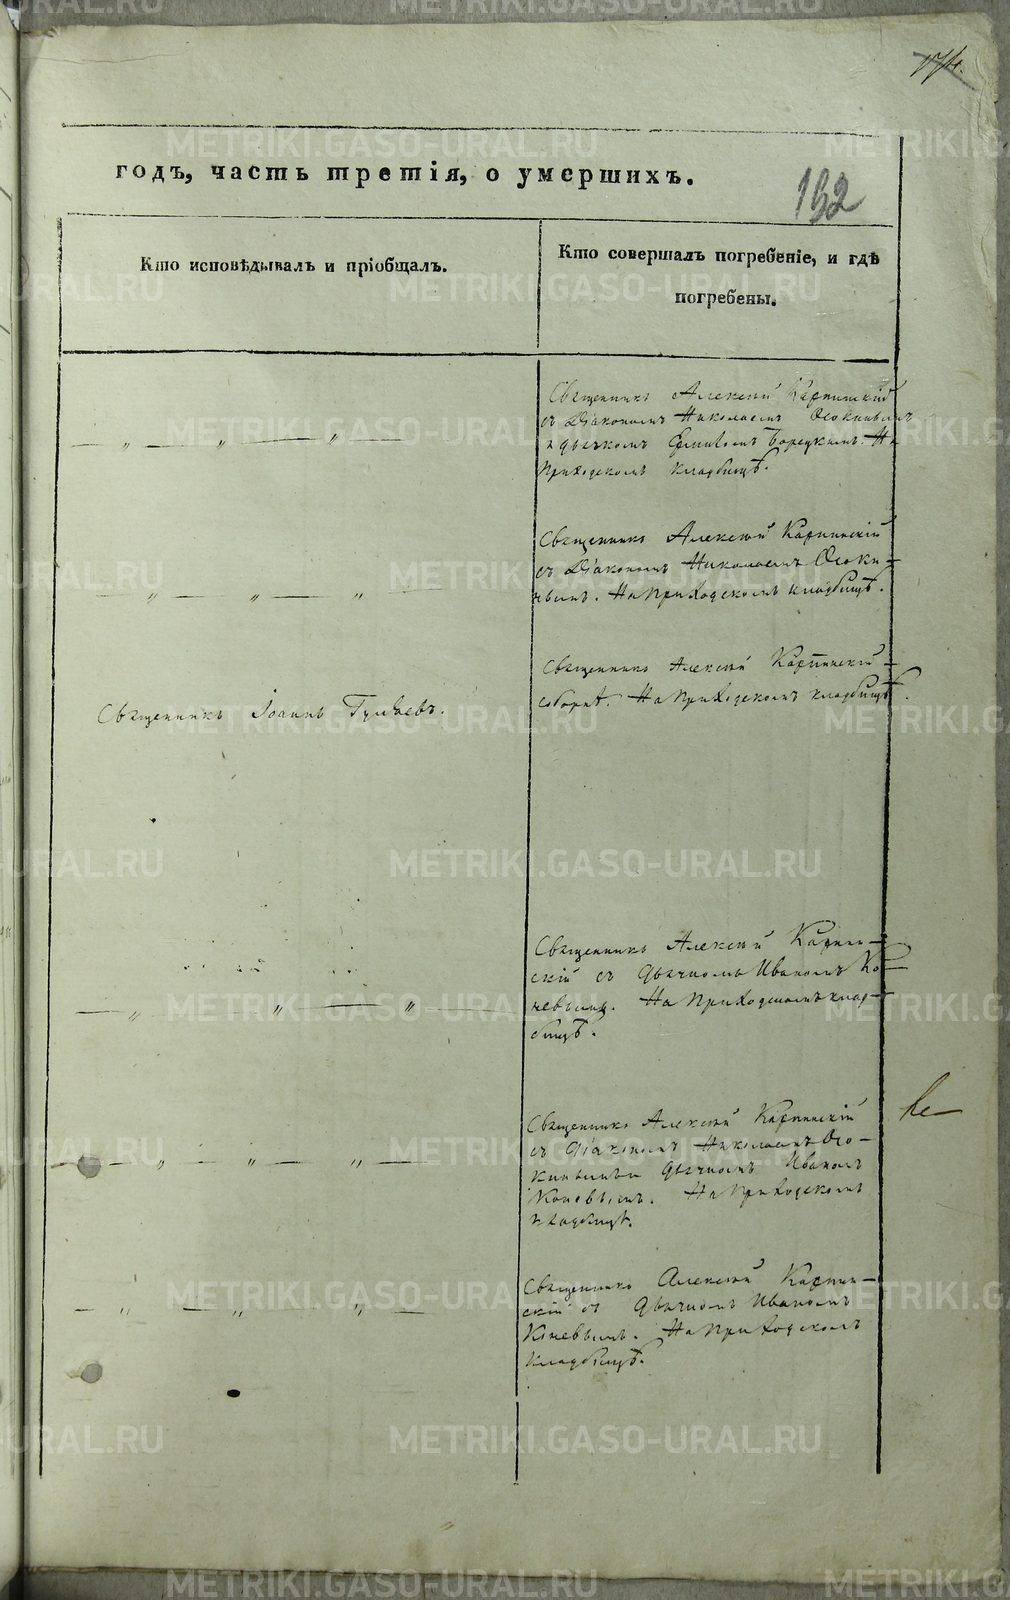 годъ, часть третія, о умершихъ.
192
Кто исповѣдывалъ и пріобщалъ.
Кто совершалъ погребеніе, и гдѣ
погребены.
— „ — „ — „ —
Священникъ Алексѣй Карпинскій
съ Діакономъ Николаемъ Осокинымъ
и дьячкомъ Борецкимъ. На
Приходскомъ кладбищѣ.
— „ — „ — „ —
Священникъ Алексѣй Карпинскій
съ Діакономъ Николаемъ Осоки-
нымъ. На Приходскомъ кладбищѣ.
Священникъ Іоаннъ Гуляевъ.
Священникъ Алексѣй Карпинскій
соборнѣ. На Приходскомъ кладбищѣ.
— „ — „ — „ —
Священникъ Алексѣй Карпин-
скій съ дьячкомъ Иваномъ Ко-
невымъ. На Приходскомъ клад-
бищѣ.
— „ — „ — „ —
Священникъ Алексѣй Карпинскій
съ Діакономъ Николаемъ Осо-
кинымъ и дьячкомъ Иваномъ
Коневымъ. На Приходскомъ
кладбищѣ.
— „ — „ — „ —
Священникъ Алексѣй Карпин-
скій съ дьячкомъ Иваномъ
Коневымъ. На Приходскомъ
кладбищѣ.
METRIKI.GASO-URAL.RU